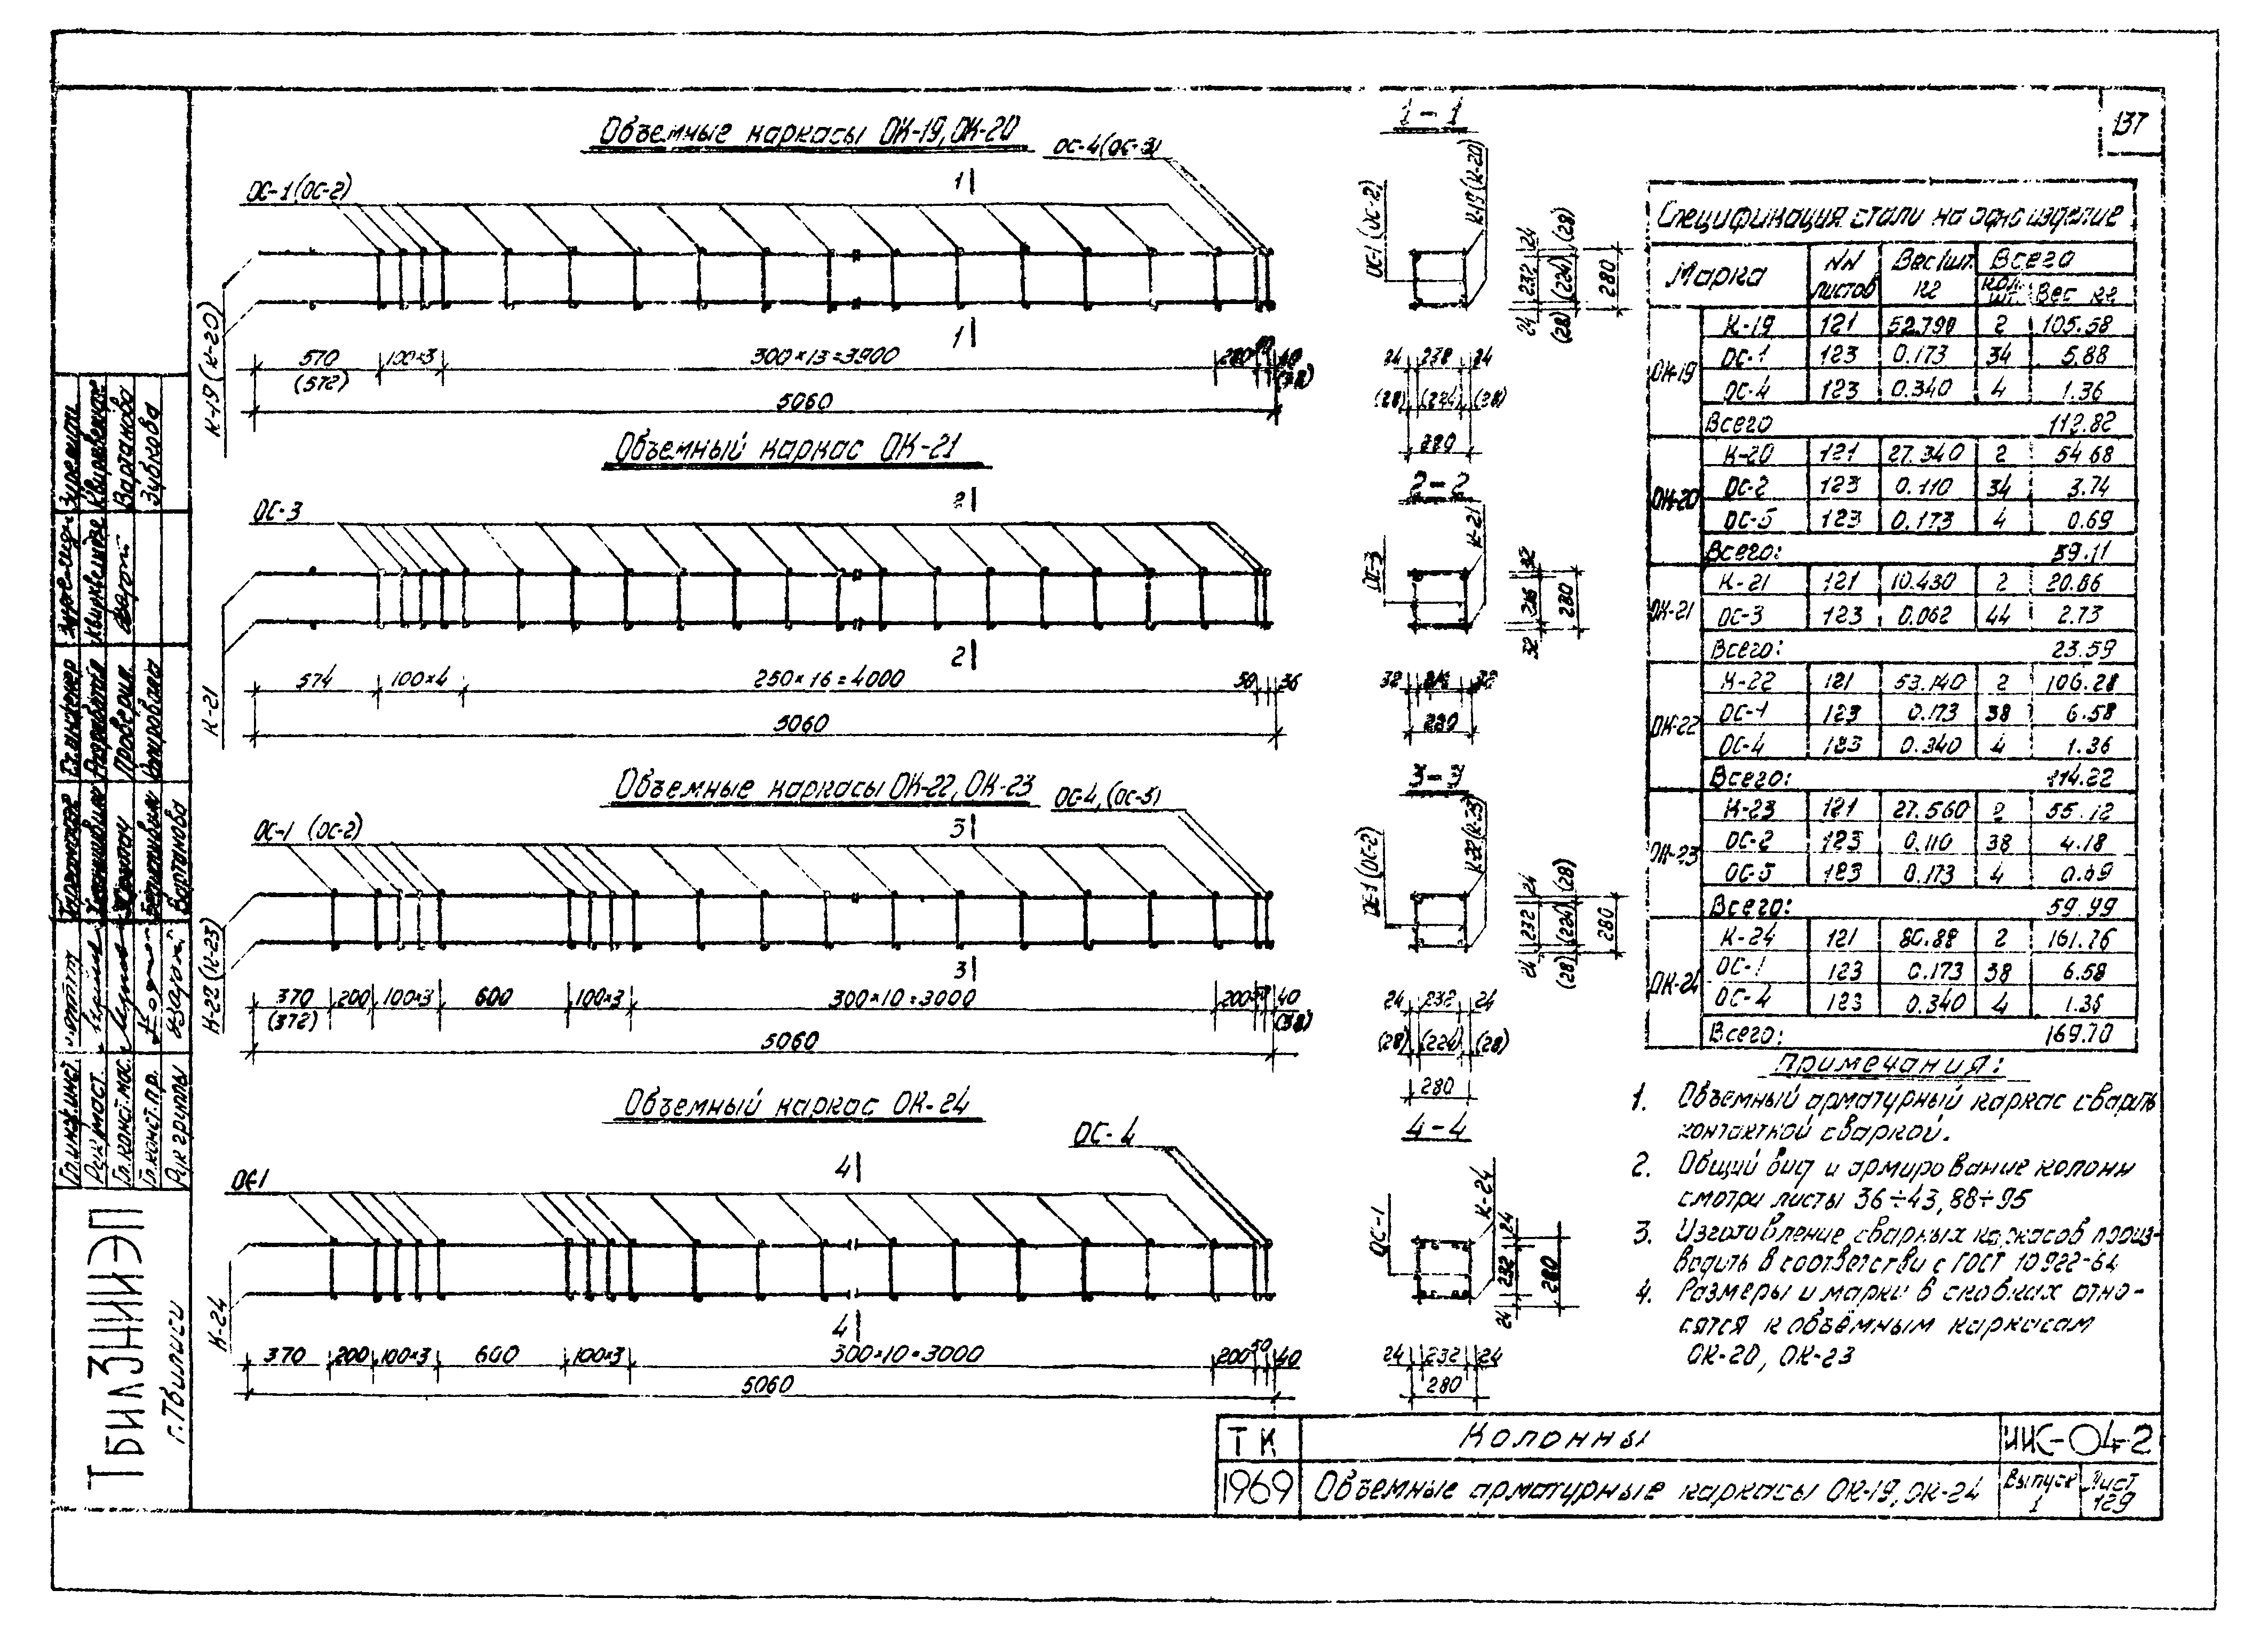 137
Объемные каркасы ОК-19, ОК-20
ОС-1 (ОС-2)
1
1
К-19 (К-20)
570
(572)
100×3
300×13=3900
200
5060
Объемный каркас ОК-21
ОС-3
2
2
К-21
574
100×4
250×16=4000
50
36
5060
Объемные каркасы ОК-22, ОК-23
ОС-4, (ОС-5)
ОС-1 (ОС-2)
3
3
К-22 (К-23)
370
(372)
200
100×3
600
100×3
300×10=3000
200
40
(38)
5060
Объемный каркас ОК-24
ОС-4
ОС-1
4
4
К-24
370
200
100×3
600
100×3
300×10=3000
200
50
40
5060
1-1
ОС-1 (ОС-2)
К-19 (К-20)
24
232
24
(28)
(224)
(28)
280
24
24
(28)
(224)
(28)
280
2-2
ОС-3
К-21
32
216
32
280
32
32
280
3-3
ОС-1 (ОС-2)
К-22 (К-23)
24
232
24
(28)
(224)
(28)
280
24
232
24
(28)
(224)
(28)
280
4-4
ОС-1
К-24
24
232
24
280
24
232
24
280
Спецификация стали на одно изделие
Марка
NN листов
Вес 1шт. кг
Всего
кол. шт.
Вес кг
ОК-19
К-19 121 52.790 2 105.58
ОС-1 123 0.173 34 5.88
ОС-4 123 0.340 4 1.36
Всего 112.82
ОК-20
К-20 121 27.340 2 54.68
ОС-2 123 0.110 34 3.74
ОС-5 123 0.173 4 0.69
Всего: 59.11
ОК-21
К-21 121 10.430 2 20.86
ОС-3 123 0.062 44 2.73
Всего: 23.59
ОК-22
К-22 121 53.140 2 106.28
ОС-1 123 0.173 38 6.58
ОС-4 123 0.340 4 1.36
Всего: 114.22
ОК-23
К-23 121 27.560 2 55.12
ОС-2 123 0.110 38 4.18
ОС-5 123 0.173 4 0.69
Всего: 59.99
ОК-24
К-24 121 80.88 2 161.76
ОС-1 123 0.173 38 6.58
ОС-4 123 0.340 4 1.36
Всего: 169.70
Примечания:
1. Объемный арматурный каркас сварить
контактной сваркой.
2. Общий вид и армирование колонн
смотри листы 36÷43, 88÷95
3. Изготовление сварных каркасов произ-
водить в соответстви с ГОСТ 10922-64
4. Размеры и марки в скобках отно-
сятся к объемным каркасам
ОК-20, ОК-23
ТК
1969
Колонны
ИИС-04-2
Объемные арматурные каркасы ОК-19, ОК-24
Выпуск
1
Лист
129
Ст. инженер
Разработал
Проверил
Копировала
Вартанова
Зубкова
Рук. маст.
Гл. конст. маст.
Гл. конст. пр.
Рук группы
Вартанова
ТбилЗНИИЭП
г. Тбилиси